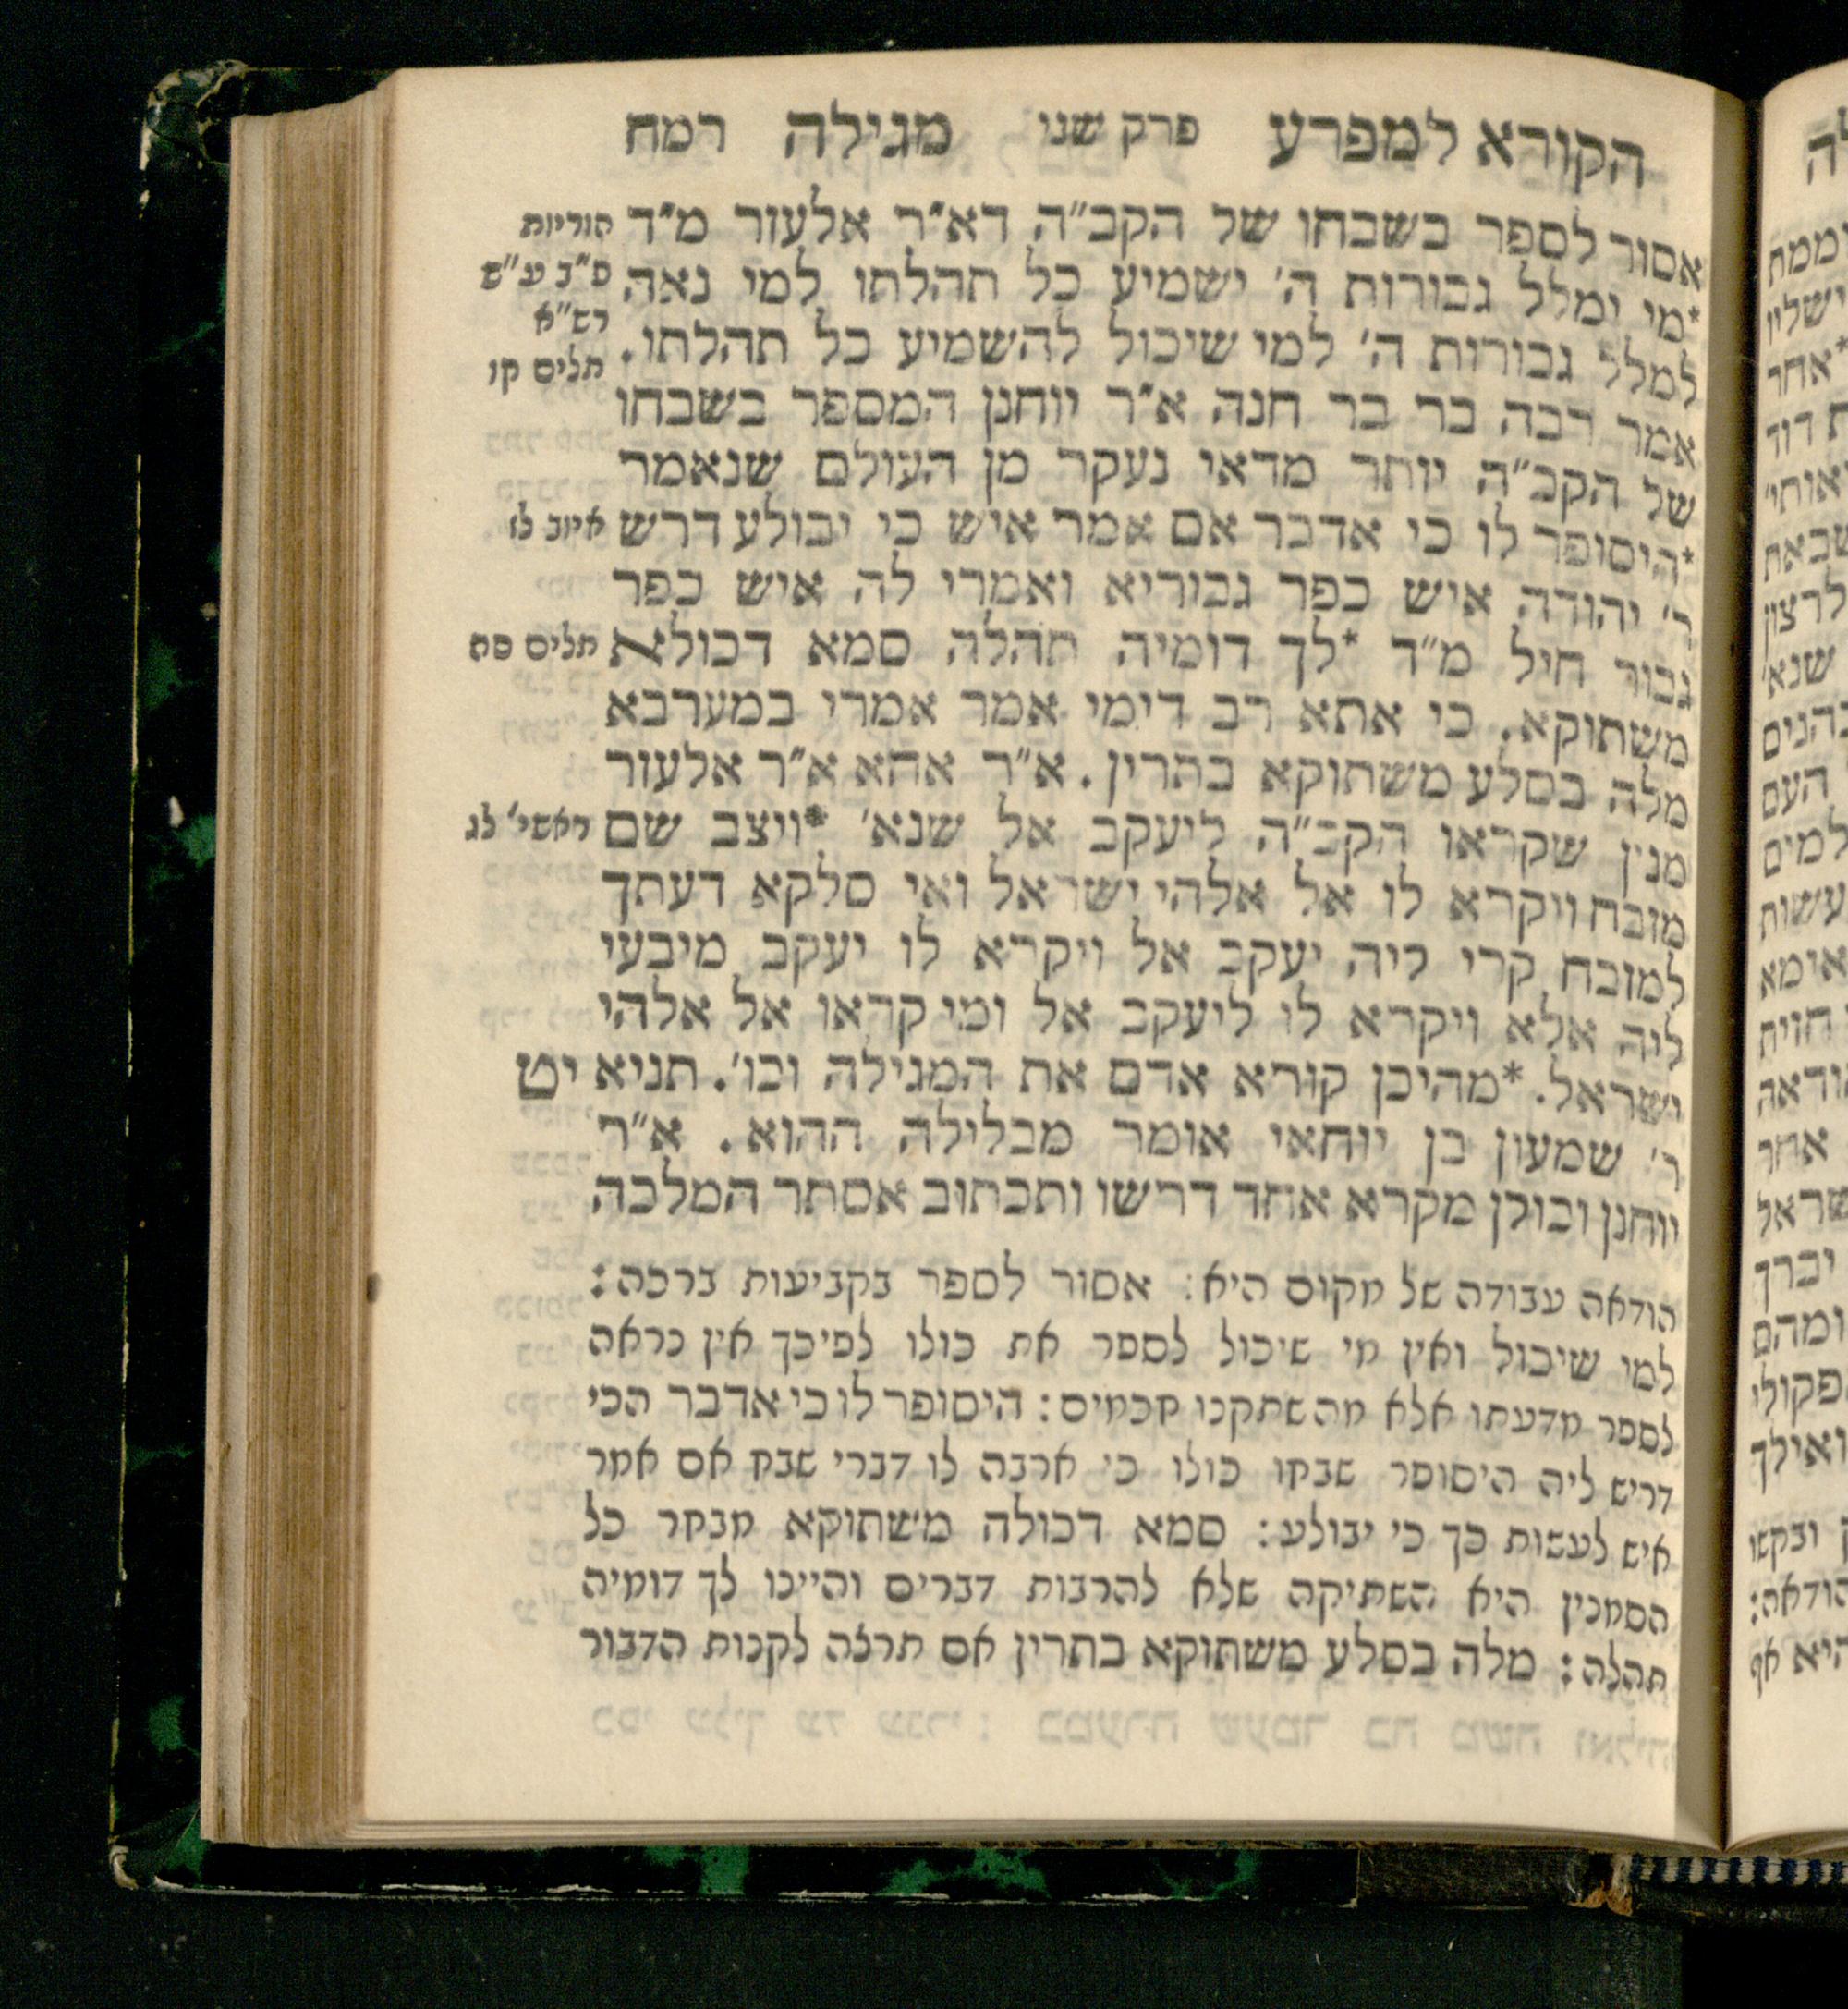 הקורא למפרע פרק שני מגילה רמח
אסור לספר בשבחו של הקב״ה דא״ר אלעזר מ״ד
*מי ימלל גבורות ה׳ ישמיע כל תהלתו למי נאה
למלל גבורות ה׳ למי שיכול להשמיע כל תהלתו.
אמר רבה בר בר חנה א״ר יוחנן המספר בשבחו
של הקב״ה יותר מדאי נעקר מן העולם שנאמר
*היסופר לו כי אדבר אם אמר איש כי יבולע דרש
ר׳ יהודה איש כפר גבוריא ואמרי לה איש כפר
גבור חיל מ״ד *לך דומיה תהלה סמא דכולא
משתוקא. כי אתא רב דימי אמר אמרי במערבא
מלה בסלע משתוקא בתרין. א״ר אחא א״ר אלעזר
מנין שקראו הקב״ה ליעקב אל שנא׳ *ויצב שם
מזבח ויקרא לו אל אלהי ישראל ואי סלקא דעתך
למזבח קרי ליה יעקב אל ויקרא לו יעקב מיבעי
ליה אלא ויקרא לו ליעקב אל ומי קראו אל אלהי
ישראל. *מהיכן קורא אדם את המגילה וכו׳. תניא
ר׳ שמעון בן יוחאי אומר מבלילה ההוא. א״ר
יוחנן וכולן מקרא אחד דרשו ותכתוב אסתר המלכה
הודאה עבודה של מקום היא: אסור לספר בקביעות ברכה:
למי שיכול ואין מי שיכול לספר את כולו לפיכך אין נראה
לספר מדעתו אלא מה שתקנו חכמים: היסופר לו כי אדבר הכי
דריש ליה היסופר שבחו כולו כי ארבה לו דברי שבח אם אמר
איש לעשות כך כי יבולע: סמא דכולה משתוקא מבחר כל
הסמנין היא השתיקה שלא להרבות דברים והיינו לך דומיה
תהלה: מלה בסלע משתוקא בתרין אם תרצה לקנות הדבור
הוריות
ס״ב ע״ש
רש״א
תלים קו
איוב לז
תלים סה
ראשי׳ לג
יט